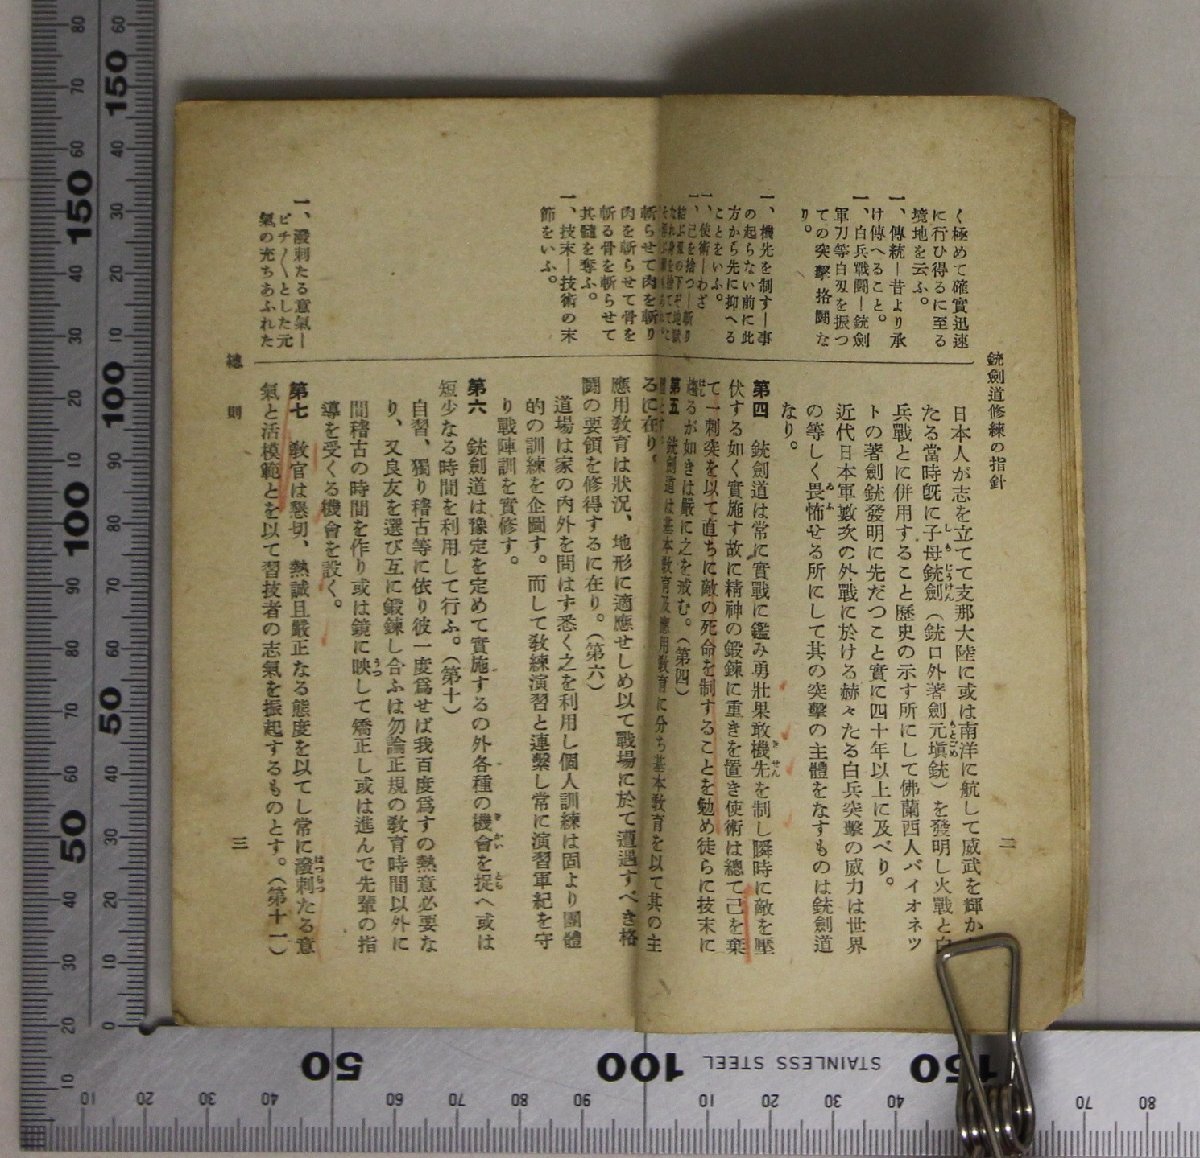 銃劍道修練の指針
二
く極めて確實迅速
に行ひ得るに至る
境地を云ふ。
一、傳統ー昔より承
け傳へること。
一、白兵戰鬪ー銃劍
軍刀等白刄を振つ
ての突擊格鬪な
り。
一、機先を制すー事
の起らない前に此
方から先に抑へる
ことをいふ。
一、使術ーわざ
一、己を捨つー斬り
結ぶ
斬らせて肉を斬り
肉を斬らせて骨を
斬る骨を斬らせて
其髓を奪ふ。
一、技末ー技術の末
節をいふ。
一、潑刺たる意氣ー
ピチ〱とした元
氣の充ちあふれた
日本人が志を立てて支那大陸に或は南洋に航して威武を輝か
たる當時既に子母銃劍（銃口外著劍元塡銃）を發明し火戰と白
兵戰とに併用すること歷史の示す所にして佛蘭西人バイオネツ
トの著劍銃發明に先だつこと實に四十年以上に及べり。
近代日本軍數次の外戰に於ける赫々たる白兵突擊の威力は世界
の等しく畏怖せる所にして其の突擊の主體をなすものは銃劍道
なり。
第四　銃劍道は常に實戰に鑑み勇壯果敢機先を制し瞬時に敵を壓
伏する如く實施す故に精神の鍛鍊に重きを置き使術は總て己を棄
て一刺突を以て直ちに敵の死命を制することを勉め徒らに技末に
趨るが如きは嚴に之を戒む。（第四）
第五　銃劍道は基本教育及應用教育に分ち基本教育を以て其の主
るに在り。
應用教育は狀況、地形に適應せしめ以て戰場に於て遭遇すべき格
鬪の要領を修得するに在り。（第六）
道場は家の內外を問はず悉く之を利用し個人訓練は固より團體
的の訓練を企圖す。而して敎練演習と連繫し常に演習軍紀を守
り戰陣訓を實修す。
第六　銃劍道は豫定を定めて實施するの外各種の機會を捉へ或は
短少なる時間を利用して行ふ。（第十）
自習、獨り稽古等に依り彼一度爲せば我百度爲すの熱意必要な
り、又良友を選び互に鍛鍊し合ふは勿論正規の敎育時間以外に
間稽古の時間を作り或は鏡に映して矯正し或は進んで先輩の指
導を受くる機會を設く。
第七　敎官は懇切、熱誠且嚴正なる態度を以てし常に潑刺たる意
氣と活模範とを以て習技者の志氣を振起するものとす。（第十一）
總則
三
STAINLESS STEEL